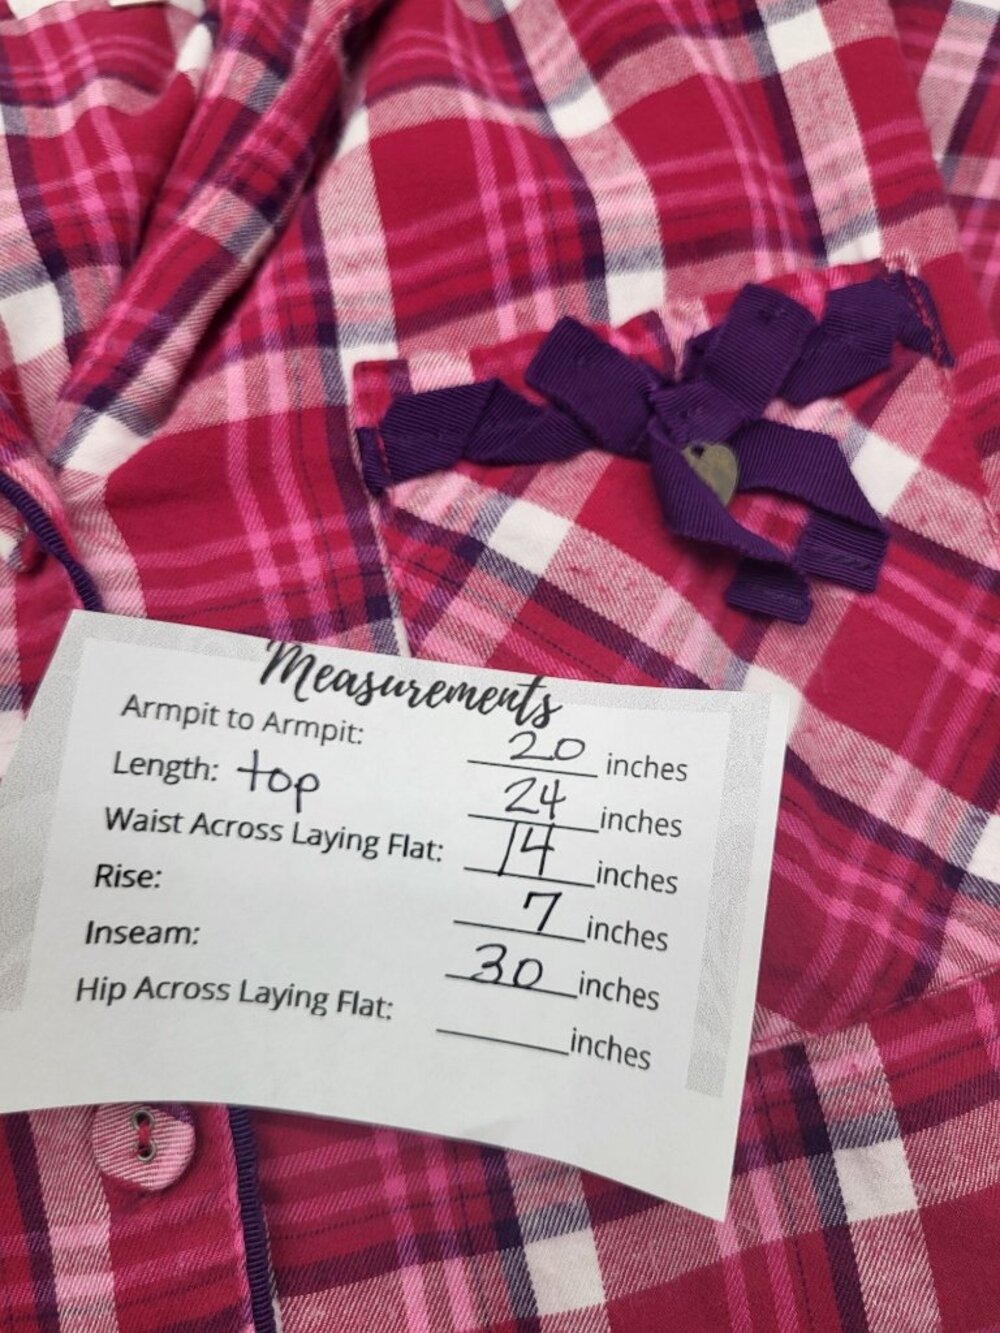 Measurements
Armpit to Armpit: 20 inches
Length: top 24 inches
Waist Across Laying Flat: 14 inches
Rise: 7 inches
Inseam: 30 inches
Hip Across Laying Flat: ______inches